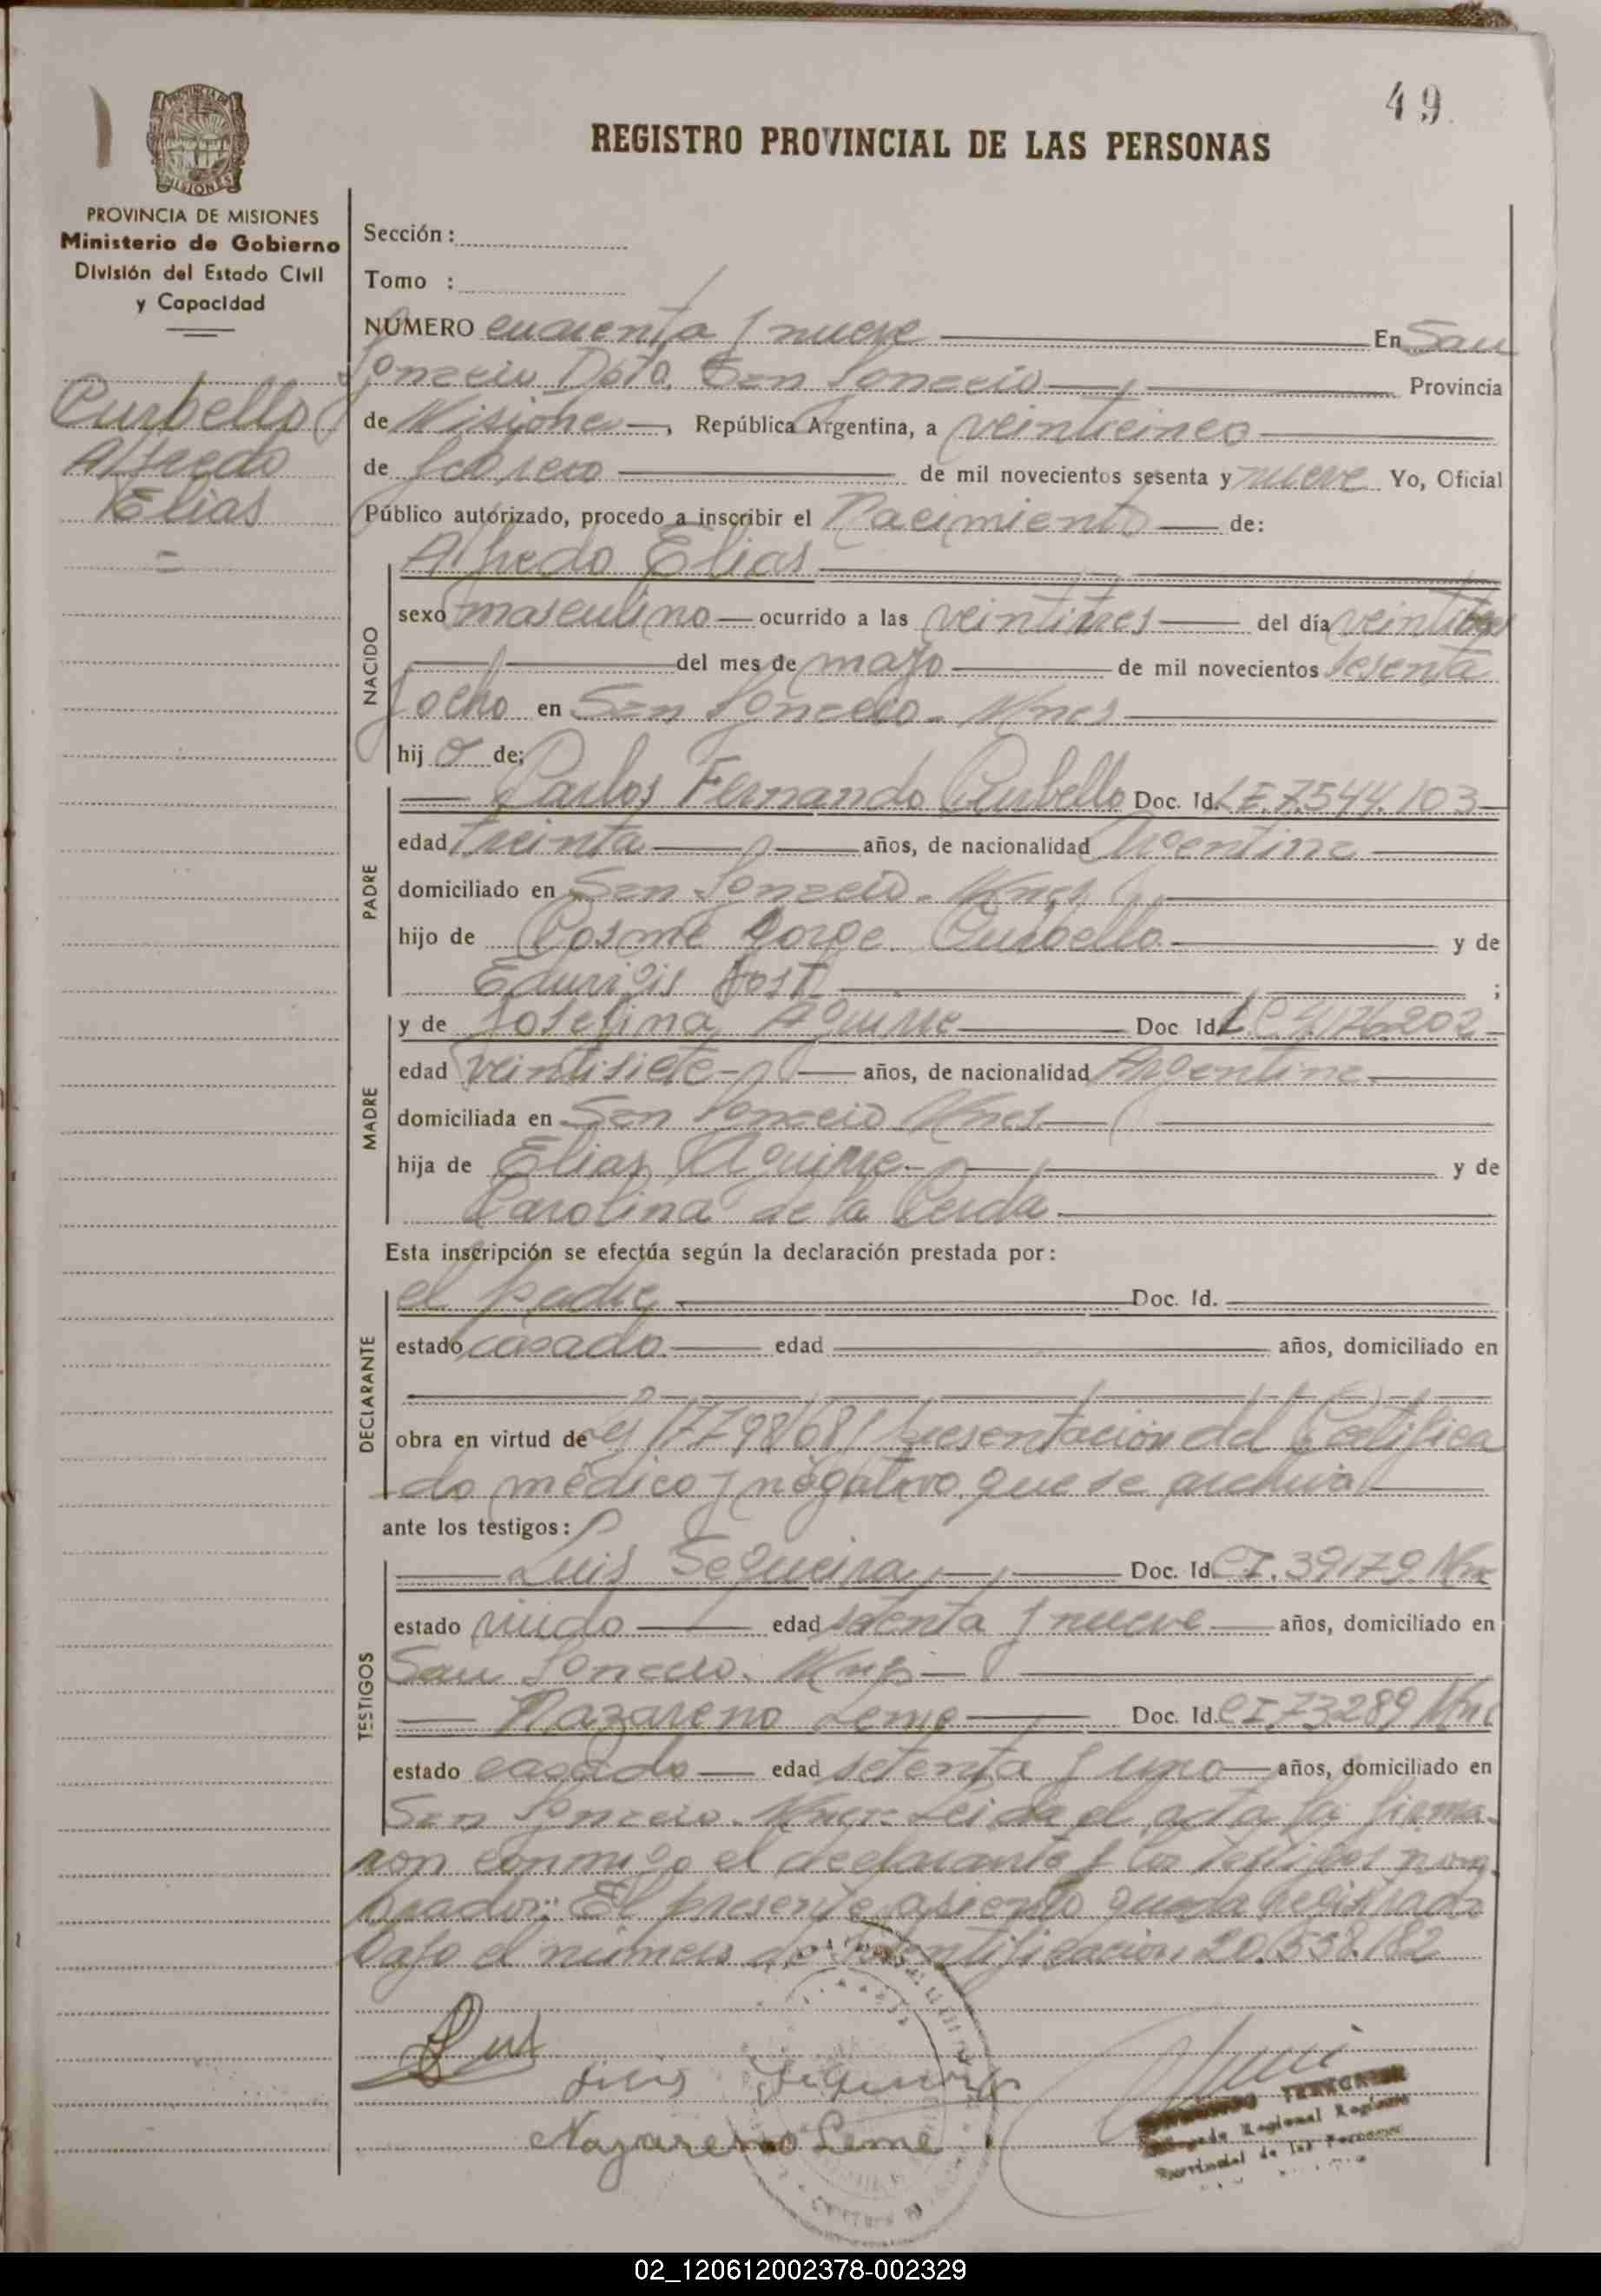 49
REGISTRO PROVINCIAL DE LAS PERSONAS
PROVINCIA DE MISIONES
MISIONES
PROVINCIA DE MISIONES
Ministerio de Gobierno
División del Estado Civil
y Capacidad
Curbello
Alfredo
Elias
=
Sección :
Tomo :
NUMERO cuarenta y nueve En San
Ignacio Dpto. San Ignacio Provincia
de Misiones, República Argentina, a veinticinco
de febrero de mil novecientos sesenta y nueve Yo, Oficial
Público autorizado, procedo a inscribir el Nacimiento de:
NACIDO
Alfredo Elias
sexo masculino ocurrido a las veintitres del día veintitres
del mes de mayo de mil novecientos sesenta
y ocho en San Ignacio - Mnes
hij o de;
PADRE
Carlos Fernando Curbello Doc. Id. LE.7.544.103
edad treinta años, de nacionalidad Argentina
domiciliado en San Ignacio - Mnes
hijo de Cosme Jorge Curbello y de
Eduvigis Jost ;
MADRE
y de Josefina Aguirre Doc. Id. LC.4.176.202
edad veintisiete años, de nacionalidad Argentina
domiciliada en San Ignacio Mnes
hija de Elias Aguirre y de
Carolina de la Cerda
Esta inscripción se efectúa según la declaración prestada por:
DECLARANTE
el padre Doc. Id.
estado casado edad años, domiciliado en
obra en virtud de Ley 17798/68 y presentación del Certifica
do médico y negativo que se archiva
ante los testigos:
TESTIGOS
Luis Sequeira Doc. Id. CI.39179 Mnes
estado viudo edad setenta y nueve años, domiciliado en
San Ignacio. Mnes
Nazareno Leme Doc. Id. CI.73289 Mnes
estado casado edad setenta y uno años, domiciliado en
San Ignacio. Mnes. Leida el acta la firma-
ron conmigo el declarante y los testigos nom
brados: El presente asiento queda registrado
bajo el número de Identificación 20.558.182
Luis Sequeira
Nazareno Leme
Delegado Regional Registro
Provincial de las Personas
02_120612002378-002329